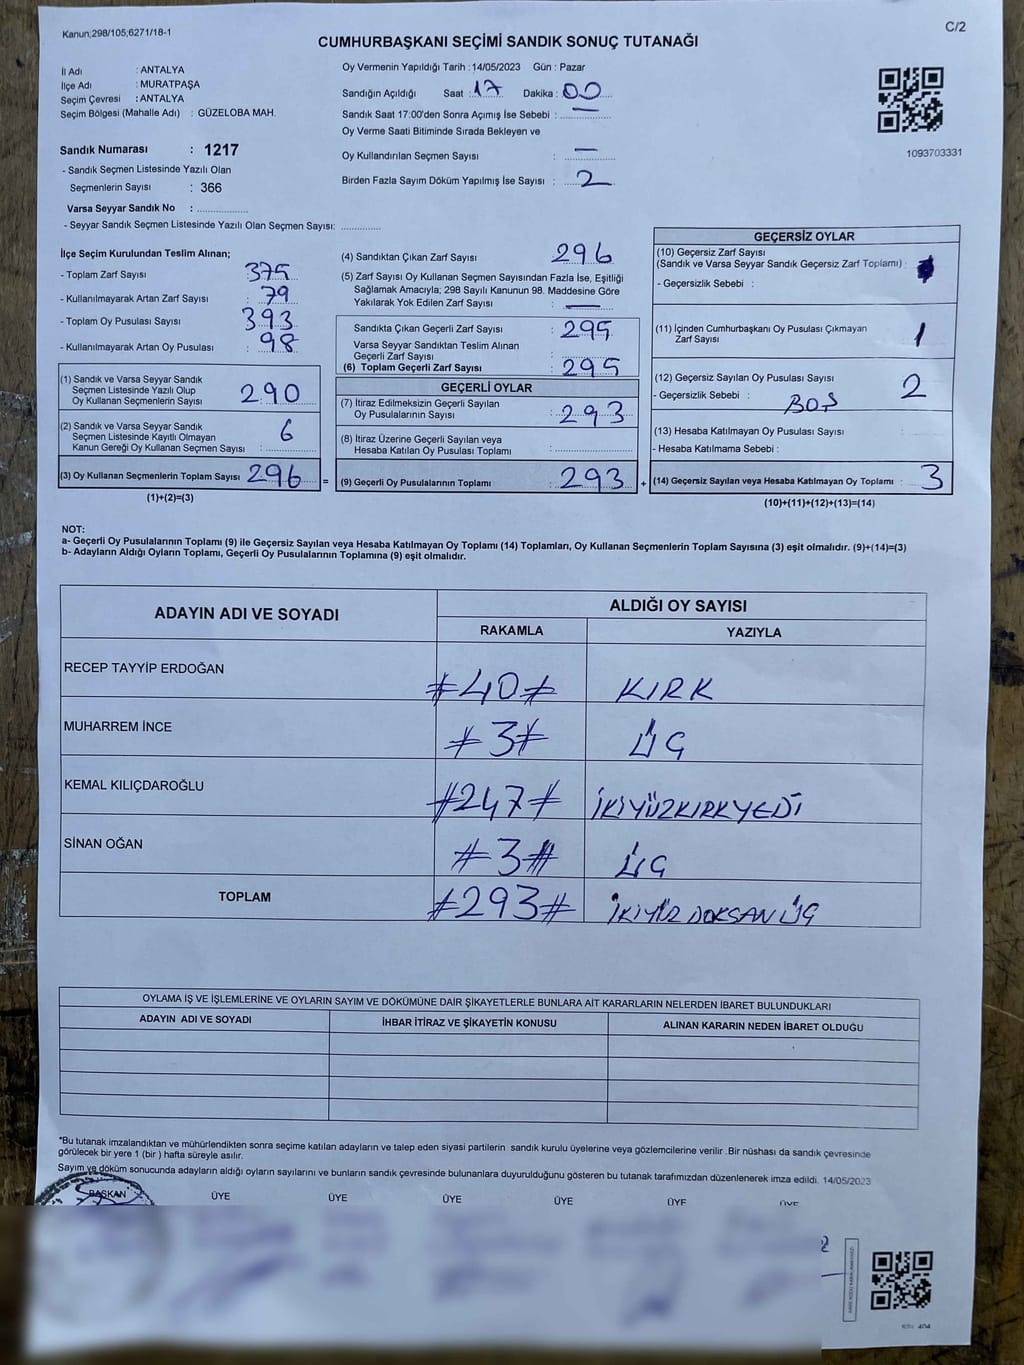 Kanun;298/105;6271/18-1
C/2
CUMHURBAŞKANI SEÇİMİ SANDIK SONUÇ TUTANAĞI
İl Adı : ANTALYA
İlçe Adı : MURATPAŞA
Seçim Çevresi : ANTALYA
Seçim Bölgesi (Mahalle Adı) : GÜZELOBA MAH.
Sandık Numarası : 1217
- Sandık Seçmen Listesinde Yazılı Olan
Seçmenlerin Sayısı : 366
Varsa Seyyar Sandık No : ................
- Seyyar Sandık Seçmen Listesinde Yazılı Olan Seçmen Sayısı: ............
Oy Vermenin Yapıldığı Tarih : 14/05/2023 Gün : Pazar
Sandığın Açıldığı Saat : 17 Dakika : 00
Sandık Saat 17:00'den Sonra Açımış İse Sebebi : —
Oy Verme Saati Bitiminde Sırada Bekleyen ve
Oy Kullandırılan Seçmen Sayısı : —
Birden Fazla Sayım Döküm Yapılmış İse Sayısı : 2
1093703331
İlçe Seçim Kurulundan Teslim Alınan;
- Toplam Zarf Sayısı : 375
- Kullanılmayarak Artan Zarf Sayısı : 79
- Toplam Oy Pusulası Sayısı : 393
- Kullanılmayarak Artan Oy Pusulası : 98
(1) Sandık ve Varsa Seyyar Sandık
Seçmen Listesinde Yazılı Olup
Oy Kullanan Seçmenlerin Sayısı : 290
(2) Sandık ve Varsa Seyyar Sandık
Seçmen Listesinde Kayıtlı Olmayan
Kanun Gereği Oy Kullanan Seçmen Sayısı : 6
(3) Oy Kullanan Seçmenlerin Toplam Sayısı : 296 =
(1)+(2)=(3)
(4) Sandıktan Çıkan Zarf Sayısı : 296
(5) Zarf Sayısı Oy Kullanan Seçmen Sayısından Fazla İse, Eşitliği
Sağlamak Amacıyla; 298 Sayılı Kanunun 98. Maddesine Göre
Yakılarak Yok Edilen Zarf Sayısı : —
Sandıkta Çıkan Geçerli Zarf Sayısı : 295
Varsa Seyyar Sandıktan Teslim Alınan
Geçerli Zarf Sayısı :
(6) Toplam Geçerli Zarf Sayısı : 295
GEÇERLİ OYLAR
(7) İtiraz Edilmeksizin Geçerli Sayılan
Oy Pusulalarının Sayısı : 293
(8) İtiraz Üzerine Geçerli Sayılan veya
Hesaba Katılan Oy Pusulası Toplamı :
(9) Geçerli Oy Pusulalarının Toplamı : 293 +
GEÇERSİZ OYLAR
(10) Geçersiz Zarf Sayısı
(Sandık ve Varsa Seyyar Sandık Geçersiz Zarf Toplamı) :
- Geçersizlik Sebebi :
(11) İçinden Cumhurbaşkanı Oy Pusulası Çıkmayan
Zarf Sayısı : 1
(12) Geçersiz Sayılan Oy Pusulası Sayısı : 2
- Geçersizlik Sebebi : BOŞ
(13) Hesaba Katılmayan Oy Pusulası Sayısı :
- Hesaba Katılmama Sebebi :
(14) Geçersiz Sayılan veya Hesaba Katılmayan Oy Toplamı : 3
(10)+(11)+(12)+(13)=(14)
NOT:
a- Geçerli Oy Pusulalarının Toplamı (9) ile Geçersiz Sayılan veya Hesaba Katılmayan Oy Toplamı (14) Toplamları, Oy Kullanan Seçmenlerin Toplam Sayısına (3) eşit olmalıdır. (9)+(14)=(3)
b- Adayların Aldığı Oyların Toplamı, Geçerli Oy Pusulalarının Toplamına (9) eşit olmalıdır.
ADAYIN ADI VE SOYADI
ALDIĞI OY SAYISI
RAKAMLA YAZIYLA
RECEP TAYYİP ERDOĞAN #40# KIRK
MUHARREM İNCE #3# ÜÇ
KEMAL KILIÇDAROĞLU #247# İKİYÜZKIRKYEDİ
SİNAN OĞAN #3# ÜÇ
TOPLAM #293# İKİYÜZ DOKSAN ÜÇ
OYLAMA İŞ VE İŞLEMLERİNE VE OYLARIN SAYIM VE DÖKÜMÜNE DAİR ŞİKAYETLERLE BUNLARA AİT KARARLARIN NELERDEN İBARET BULUNDUKLARI
ADAYIN ADI VE SOYADI İHBAR İTİRAZ VE ŞİKAYETİN KONUSU ALINAN KARARIN NEDEN İBARET OLDUĞU
*Bu tutanak imzalandıktan ve mühürlendikten sonra seçime katılan adayların ve talep eden siyasi partilerin sandık kurulu üyelerine veya gözlemcilerine verilir .Bir nüshası da sandık çevresinde
görülecek bir yere 1 (bir ) hafta süreyle asılır.
Sayım ve döküm sonucunda adayların aldığı oyların sayılarını ve bunların sandık çevresinde bulunanlara duyurulduğunu gösteren bu tutanak tarafımızdan düzenlenerek imza edildi. 14/05/2023
BAŞKAN ÜYE ÜYE ÜYE ÜYE ÜYE ÜYE